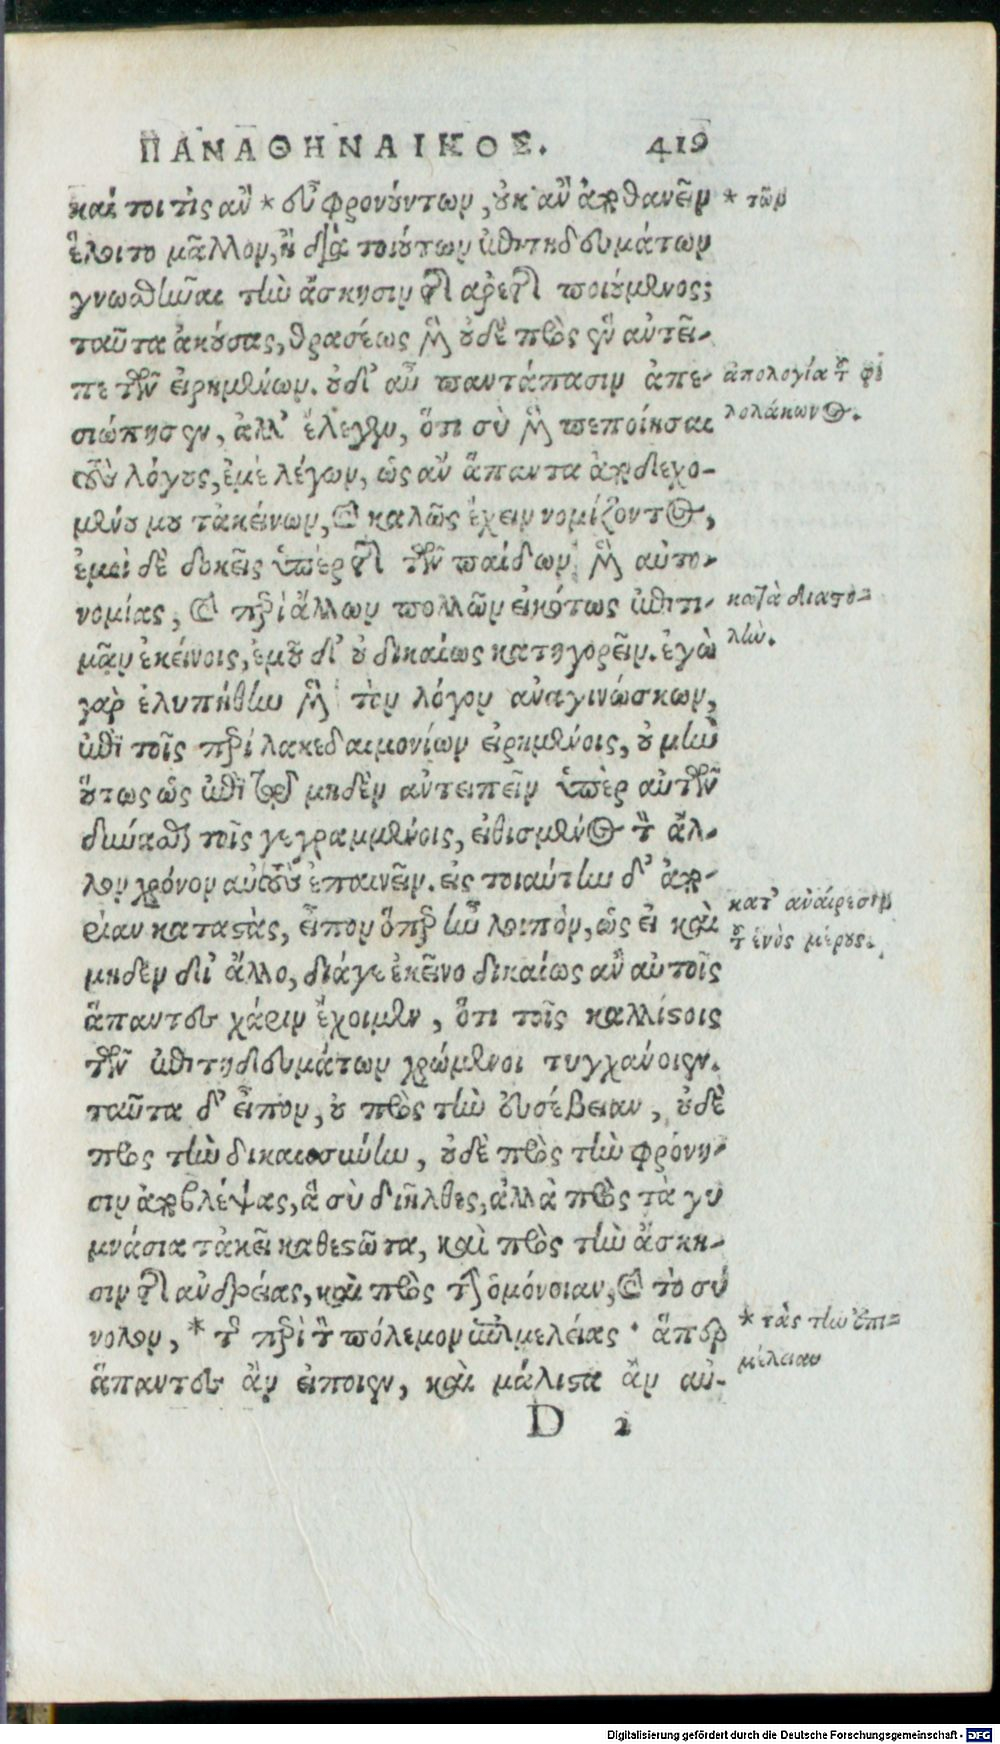 ΠΑΝΑΘΗΝΑΙΚΟΣ. 419
καί τοι τὶς ἂν * εὖ φρονούντων, οὐκ ἂν ἀποθανεῖν * τῶν
ἕλοιτο μᾶλλον, ἢ διὰ τοιούτων ἐπιτηδευμάτων
γνωσθῆναι τὴν ἄσκησιν τῆς ἀρετῆς ποιούμενος;
ταῦτα ἀκούσας, θρασέως μὲν οὐδὲ πρὸς ἓν ἀντεῖ-
πε τῶν εἰρημένων. οὐδ' αὖ παντάπασιν ἀπε- ἀπολογία τοῦ φι
σιώπησεν, ἀλλ' ἔλεγεν, ὅτι σὺ μὲν πεποίησαι λολάκωνος.
τοὺς λόγους, ἐμὲ λέγων, ὡς ἂν ἅπαντα ἀποδεχο-
μένου μου τἀκείνων, καὶ καλῶς ἔχειν νομίζοντος,
ἐμοὶ δὲ δοκεῖς ὑπὲρ τῆς τῶν παίδων μὲν αὐτο-
νομίας, καὶ περὶ ἄλλων πολλῶν εἰκότως ἐπιτι- κατὰ διαστο-
μᾷν ἐκείνοις, ἐμοῦ δ' οὐ δικαίως κατηγορεῖν. ἐγὼ λήν.
γὰρ ἐλυπήθην μὲν τὸν λόγον ἀναγινώσκων,
ἐπὶ τοῖς περὶ λακεδαιμονίων εἰρημένοις, οὐ μὴν
οὕτως ὡς ἐπὶ τῷ μηδὲν ἀντειπεῖν ὑπὲρ αὐτῶν
δύνασθαι τοῖς γεγραμμένοις, εἰθισμένος τὸν ἄλ-
λον χρόνον αὐτοὺς ἐπαινεῖν. εἰς τοιαύτην δ' ἀπο-
ρίαν καταστὰς, εἶπον ὅπερ ἦν λοιπὸν, ὡς εἰ καὶ κατ' ἀναίρεσιν
μηδὲν δι' ἄλλο, διάγε ἐκεῖνο δικαίως ἂν αὐτοῖς τοῦ ἑνὸς μέρους.
ἅπαντες χάριν ἔχοιμεν, ὅτι τοῖς καλλίστοις
τῶν ἐπιτηδευμάτων χρώμενοι τυγχάνοιεν.
ταῦτα δ' εἶπον, οὐ πρὸς τὴν εὐσέβειαν, οὐδὲ
πρὸς τὴν δικαιοσύνην, οὐδὲ πρὸς τὴν φρόνη-
σιν ἀποβλέψας, ἃ σὺ διῆλθες, ἀλλὰ πρὸς τὰ γυ
μνάσια τἀκεῖ καθεστῶτα, καὶ πρὸς τὴν ἄσκη-
σιν τῆς ἀνδρείας, καὶ πρὸς τὴν ὁμόνοιαν, καὶ τὸ σύ
νολον, * τῆς περὶ τὸν πόλεμον ἐπιμελείας· ἅπερ * τὰς τὴν ἐπι-
ἅπαντες ἂν εἴποιεν, καὶ μάλιστα ἂν αὐ- μέλειαν
D 2
Digitalisierung gefördert durch die Deutsche Forschungsgemeinschaft - DFG